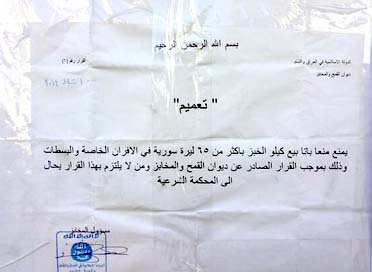 بسم الله الرحمن الرحيم
الدولة الاسلامية في العراق والشام
ديوان القمح والمخابز
القرار رقم (١)
" تعميم "
يمنع منعا باتا بيع كيلو الخبز باكثر من ٦٥ ليرة سورية في الافران الخاصة والبسطات
وذلك بموجب القرار الصادر عن ديوان القمح والمخابز ومن لا يلتزم بهذا القرار يحال
الى المحكمة الشرعية
مسؤول المخابز